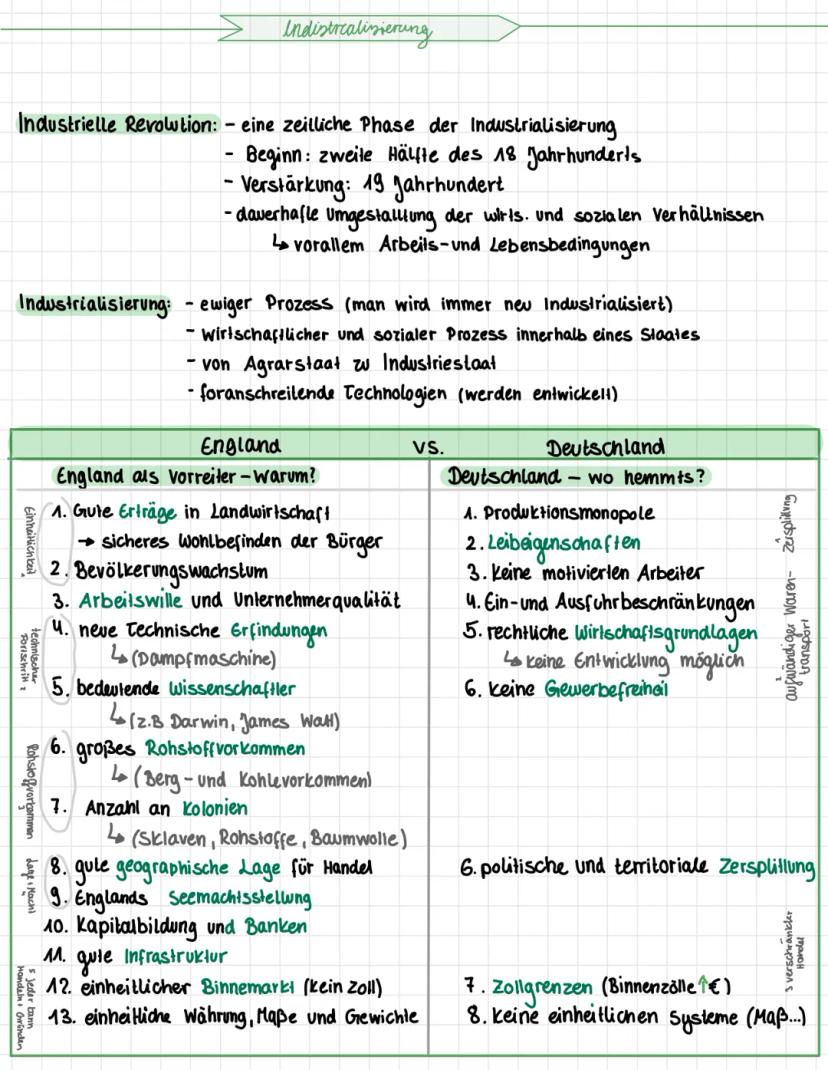 Indistrcalisierung
Industrielle Revolution: - eine zeitliche Phase der Industrialisierung
- Beginn: zweite Hälfte des 18 Jahrhunderts
- Verstärkung: 19 Jahrhundert
- dauerhafte Umgestalltung der wirts. und sozialen Verhältnissen
↳ vorallem Arbeits-und Lebensbedingungen
Industrialisierung: - ewiger Prozess (man wird immer neu Industrialisiert)
- wirtschaftlicher und sozialer Prozess innerhalb eines Staates
- von Agrarstaat zu Industriestaat
- foranschreitende Technologien (werden entwickelt)
England vs. Deutschland
England als Vorreiter - Warum?
Einheitlichkeit
1. Gute Erträge in Landwirtschaft
→ sicheres Wohlbefinden der Bürger
2. Bevölkerungswachstum
3. Arbeitswille und Unternehmerqualität
technischer Fortschritt 2
4. neue Technische Erfindungen
↳ (Dampfmaschine)
5. bedeutende Wissenschaftler
↳ (z.B Darwin, James Watt)
Rohstoffvorkommen 3
6. großes Rohstoffvorkommen
↳ (Berg- und Kohlevorkommen)
7. Anzahl an Kolonien
↳ (Sklaven, Rohstoffe, Baumwolle)
Lage + Macht
8. gute geographische Lage für Handel
9. Englands Seemachtsstellung
10. Kapitalbildung und Banken
11. gute Infrastruktur
5 jeder kann Handeln + Gründen
12. einheitlicher Binnemarkt (kein Zoll)
13. einheitliche Währung, Maße und Gewichte
Deutschland - wo hemmts?
1. Produktionsmonopole
2. Leibeigenschaften
3. Keine motivierten Arbeiter
4. Ein-und Ausfuhrbeschränkungen
5. rechtliche Wirtschaftsgrundlagen
↳ keine Entwicklung möglich
6. keine Gewerbefreiheit
1 Zersplittung
2 aufwändiger Waren-
transport
6. politische und territoriale Zersplittung
7. Zollgrenzen (Binnenzölle ↑€)
8. Keine einheitlichen Systeme (Maß...)
3 verschränkter
Handel